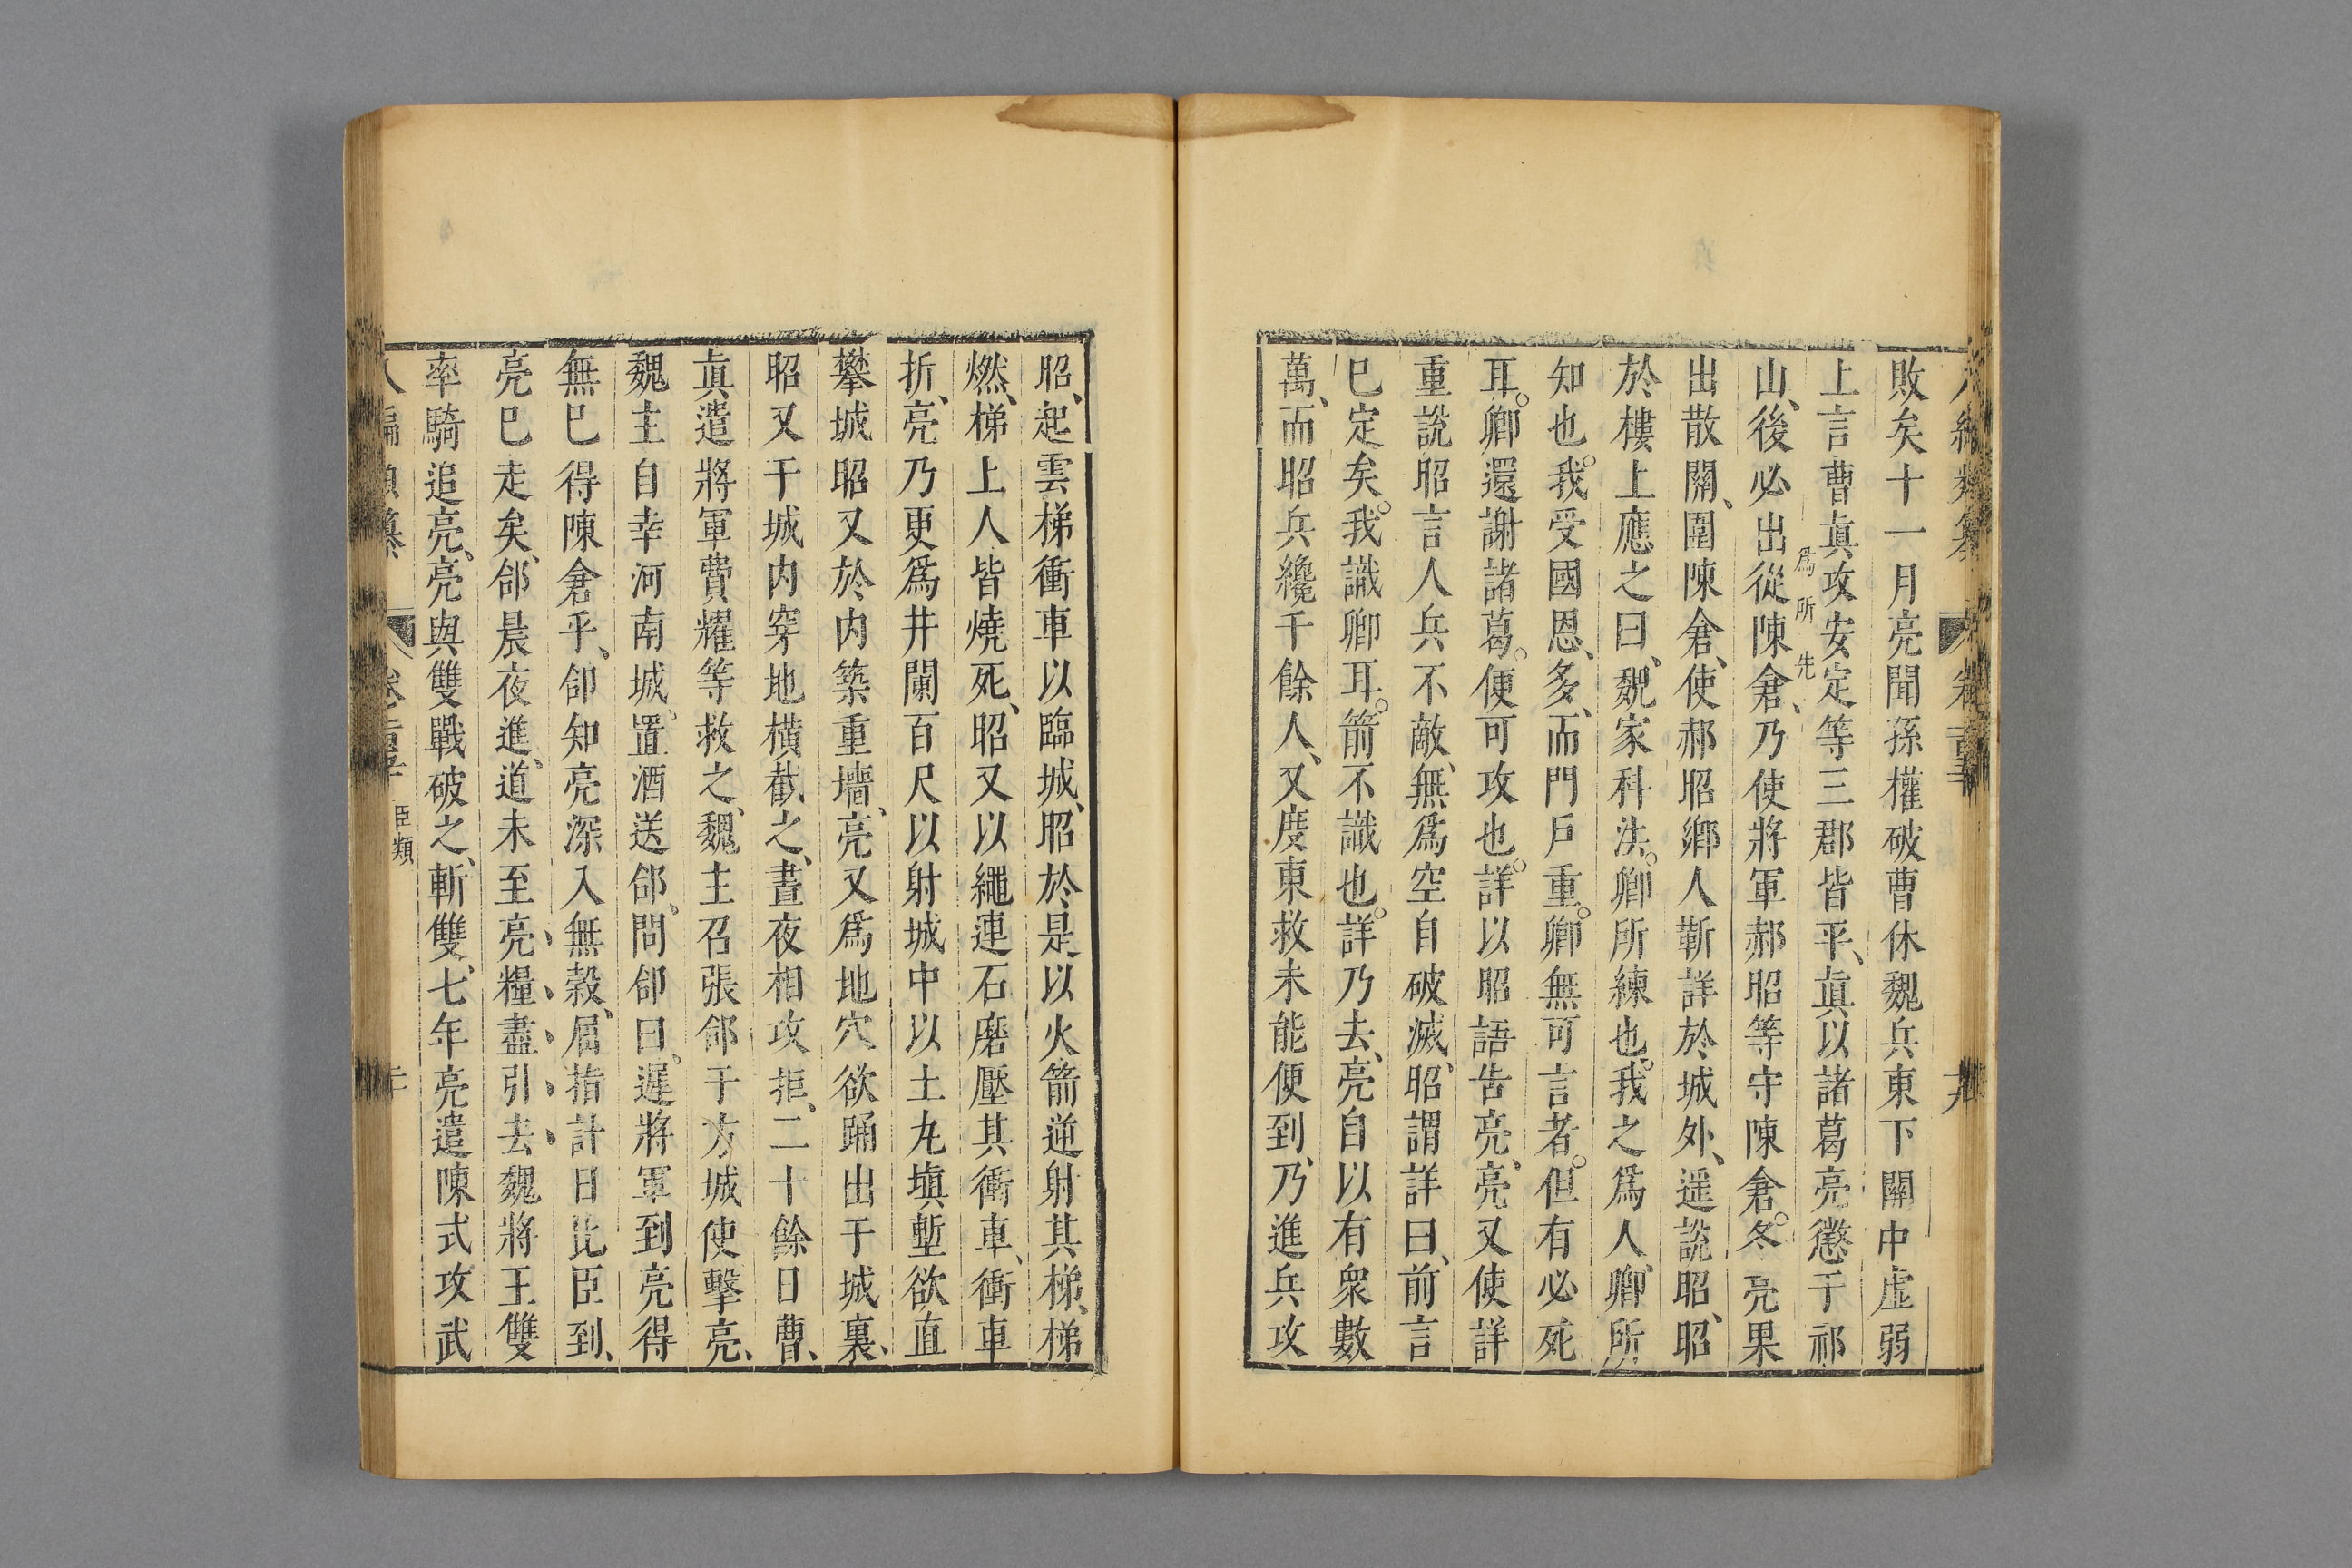 敗矣十一月亮聞孫權破曹休魏兵東下關中虛弱
上言曹眞攻安定等三郡皆平、眞以諸葛亮懲于祁
爲所先
山、後必出從陳倉、乃使將軍郝昭等守陳倉。冬亮果
出散關、圍陳倉、使郝昭鄉人靳詳於城外、遥說昭、昭
於樓上應之曰、魏家科法。卿所練也。我之爲人、卿所
知也。我受國恩、多、而門戶重。卿無可言者。但有必死
耳。卿還謝諸葛。便可攻也。詳以昭語告亮、亮又使詳
重說昭言人兵不敵、無爲空自破滅、昭謂詳曰、前言
已定矣。我識卿耳。箭不識也。詳乃去、亮自以有衆數
萬、而昭兵纔千餘人、又度東救未能便到、乃進兵攻
昭、起雲梯衝車以臨城、昭於是以火箭逆射其梯、梯
燃、梯上人皆燒死、昭又以繩連石磨壓其衝車、衝車
折、亮乃更爲井闌百尺以射城中以土丸塡塹欲直
攀城昭又於内築重墻、亮又爲地穴欲踊出于城裏、
昭又于城内穿地橫截之、晝夜相攻拒、二十餘日曹、
眞遣將軍費耀等救之、魏主召張郃于方城使擊亮、
魏主自幸河南城、置酒送郃、問郃曰。遲將軍到亮得
無巳得陳倉乎、郃知亮深入無穀、屈指計日比臣到、
亮巳走矣、郃晨夜進、道未至亮、糧、盡、引、去、魏將王雙
率騎追亮、亮與雙戰破之、斬雙、七年亮遣陳式攻武
八編類纂 卷 臣類